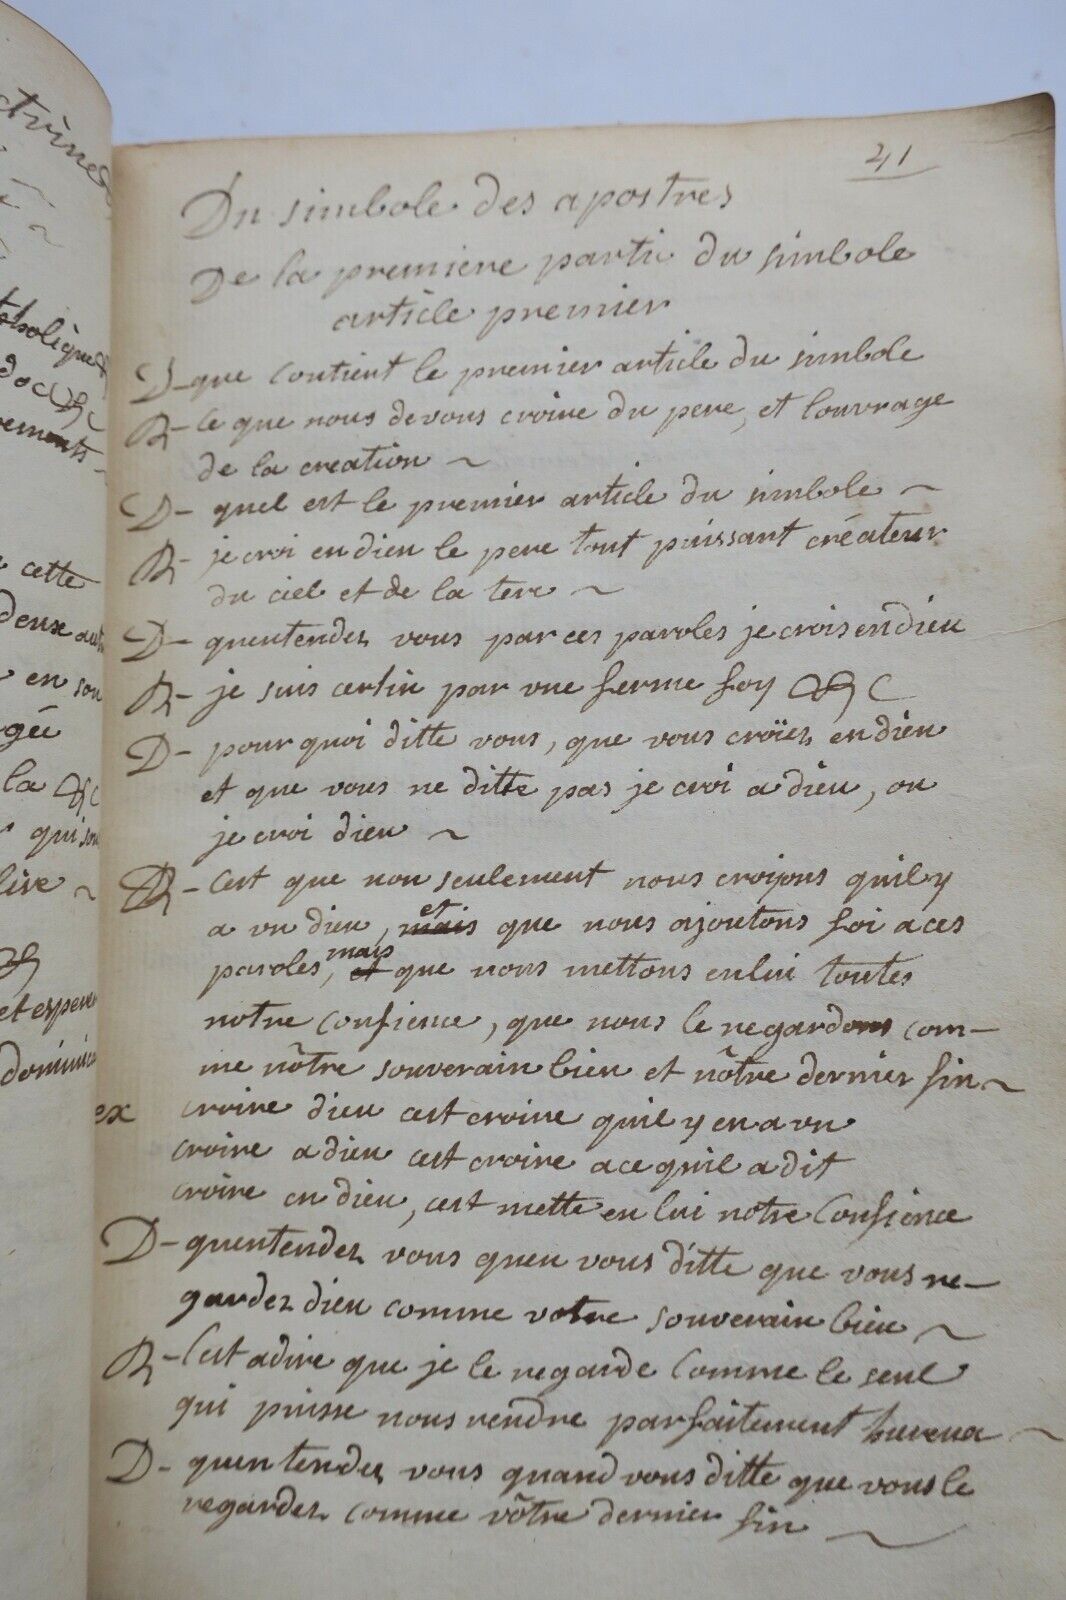 41
Du simbole des apostres
De la premiere partie du simbole
article premier
D- que contient le premier article du simbole
R- ce que nous devons croire du pere, et louvrage
de la creation ~
D- quel est le premier article du simbole ~
R- je croi en dieu le pere tout puissant créateur
du ciel et de la tere ~
D- quentendez vous par ces paroles je crois en dieu
R- je suis certin par vne ferme foy &c
D- pourquoi ditte vous, que vous croïez en dieu
et que vous ne ditte pas je croi a dieu, ou
je croi dieu ~
R- Cest que non seulement nous croijons quil y
a vn dieu, mais et que nous ajoutons foi a ces
paroles, et mais que nous mettons en lui toutes
notre confience, que nous le regardons com-
me nôtre souverain bien et nôtre dernier fin ~
ex croire dieu cest croire quil y en a vn
croire a dieu cest croire a ce quil a dit
croire en dieu, cest mette en lui notre Confience
D- quentendez vous quen vous ditte que vous re-
gardez dieu comme votre souverain bien ~
R- Cest adire que je le regarde Comme le seul
qui puisse nous rendre parfaitement hureux ~
D- quentendez vous quand vous ditte que vous le
regardez comme vôtre dernier fin ~
cette
en son
la &c